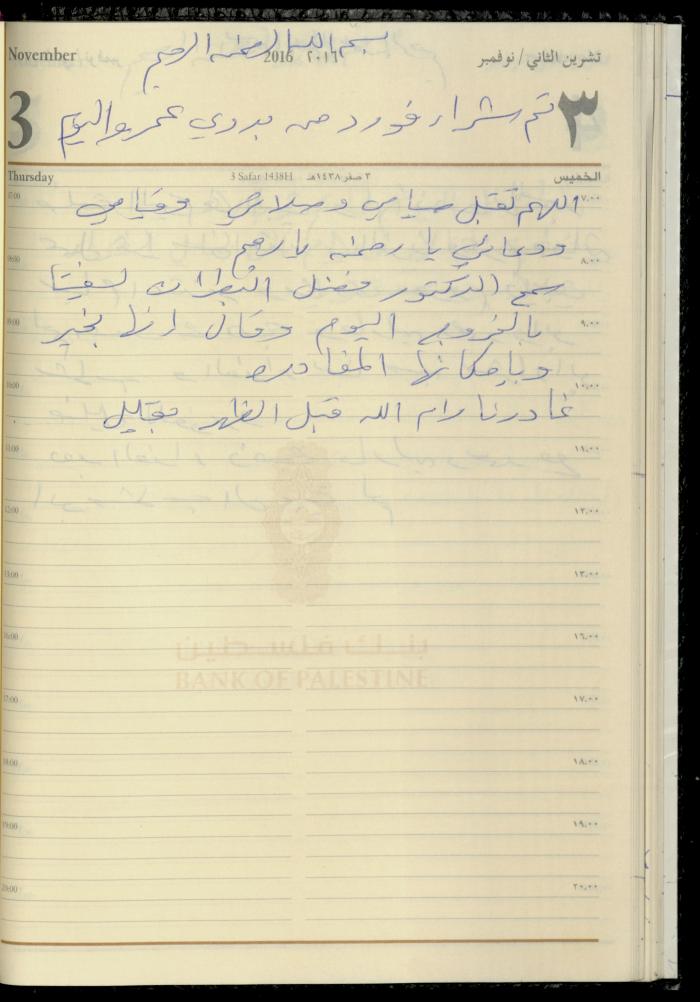 بسم الله الرحمن الرحيم
November 2016 ٢٠١٦ تشرين الثاني / نوفمبر
3 تم شراء فورد من بدوي عمرو اليوم ٣
Thursday 3 Safar 1438H ٣ صفر ١٤٣٨هـ الخميس
07:00 اللهم تقبل صيامي وصلاتي وقيامي ٧،٠٠
ودعائي يا رحمن يا رحيم
08:00 ٨،٠٠
سمح الدكتور فضل
09:00 بالخروج اليوم وقال انها بخير ٩،٠٠
وبإمكانها المغادره
10:00 ١٠،٠٠
غادرنا رام الله قبل الظهر بقليل
11:00 ١١،٠٠
12:00 ١٢،٠٠
13:00 ١٣،٠٠
16:00 ١٦،٠٠
بنك فلسطين
BANK OF PALESTINE
17:00 ١٧،٠٠
18:00 ١٨،٠٠
19:00 ١٩،٠٠
20:00 ٢٠،٠٠